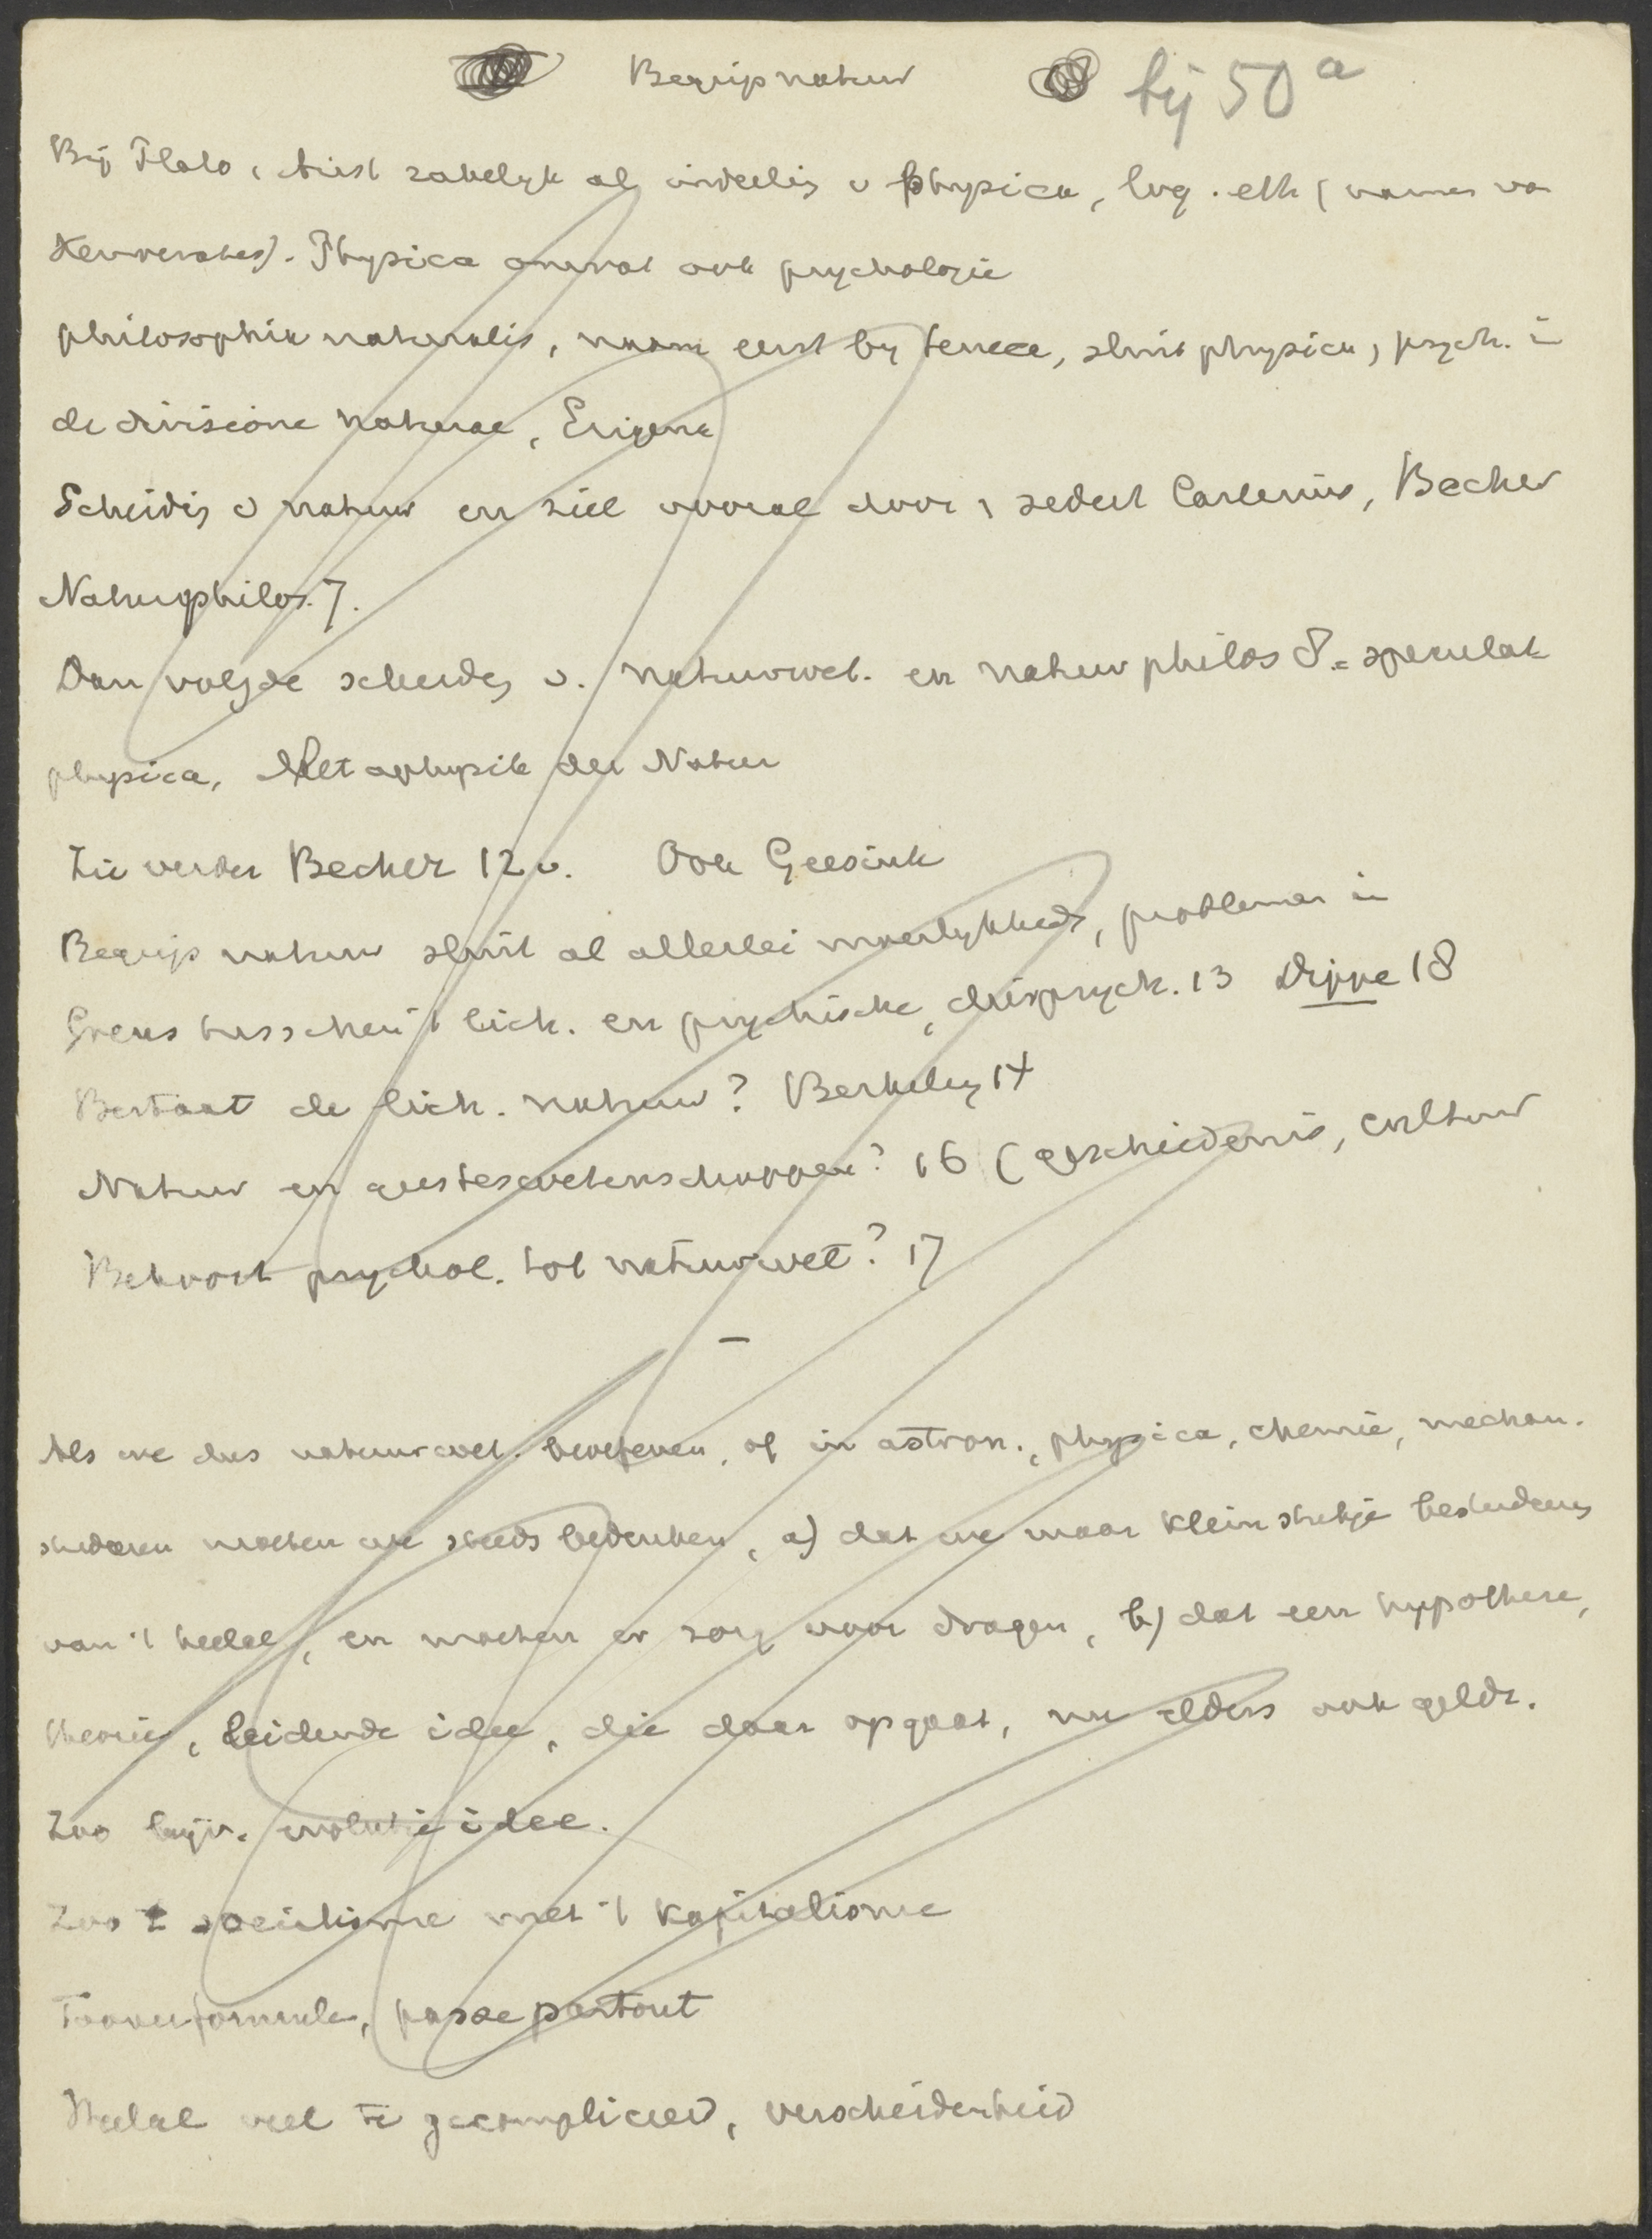 Begrip natuur bij 50 a
Bij Plato, Arist zakelijk al indeeling v physica, log. eth (namen van
Xenocrates). Physica omvat ook psychologie
philosophia naturalis, naam eerst by Seneca, sluit physica, psych. in
de divisione naturae, Erigena
Scheidig v natuur en ziel vooral door, sedert Cartesius, Becher
Naturphilos. 7.
Dan volgde scheidg v. natuurwet. en natuurphilos 8. = speculat
physica, Metaphysik der Natur
Zie verder Becher 12 v. Ook Geesink
Begrip natuur sluit al allerlei moeilykheid, problemen in
Grens tusschen 't lich. en psychische, dierpsych. 13 Dippe 18
Bestaat de lich. natuur? Berkeley 14
Natuur en geesteswetenschappen? 16 (geschiedenis, cultuur
Behoort psychol. tot natuurwet? 17
Als we dus natuurwet. beoefenen, of in astron., physica, chemie, mechan.
studeeren moeten we steeds bedenken, a) dat we maar klein stukje bestudeeren
van 't heelal, en moeten er zorg voor dragen, b) dat een hypothese,
theorie, leidende idee, die daar opgaat, nu elders ook geldt.
Zoo bijv. evolutie idee.
Zoo t socialisme met 't kapitalisme
Tooverformule, passe partout
Heelal veel te gecompliceerd, verscheidenheid